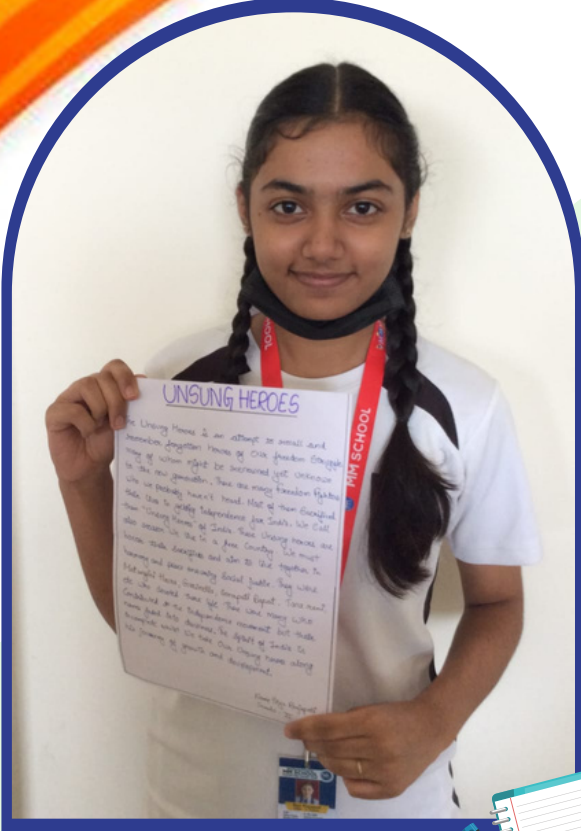 UNSUNG HEROES
The Unsung Heroes is an attempt to recall and
remember forgotten heroes of our freedom Struggle
many of whom might be renowned yet unknown
to the new generation. There are many freedom fighters
who we probably haven't heard. Most of them Sacrificed
their lives in getting Independence for India. We call
them "Unsung Heroes" of India. These Unsung heroes are
also reason we live in a free Country. We must
their Sacrifice and aim to live together in
harmony and peace ensuring Social Justice. They were
Matangini Hazra,
etc. who their life. There were many who
Contributed in the Independence movement but their
names faded into The Spirit of India is
incomplete until we take Our Unsung heroes along
his journey of growth and development.
Name
SCHOOL
MM SCHOOL
MM SCHOOL